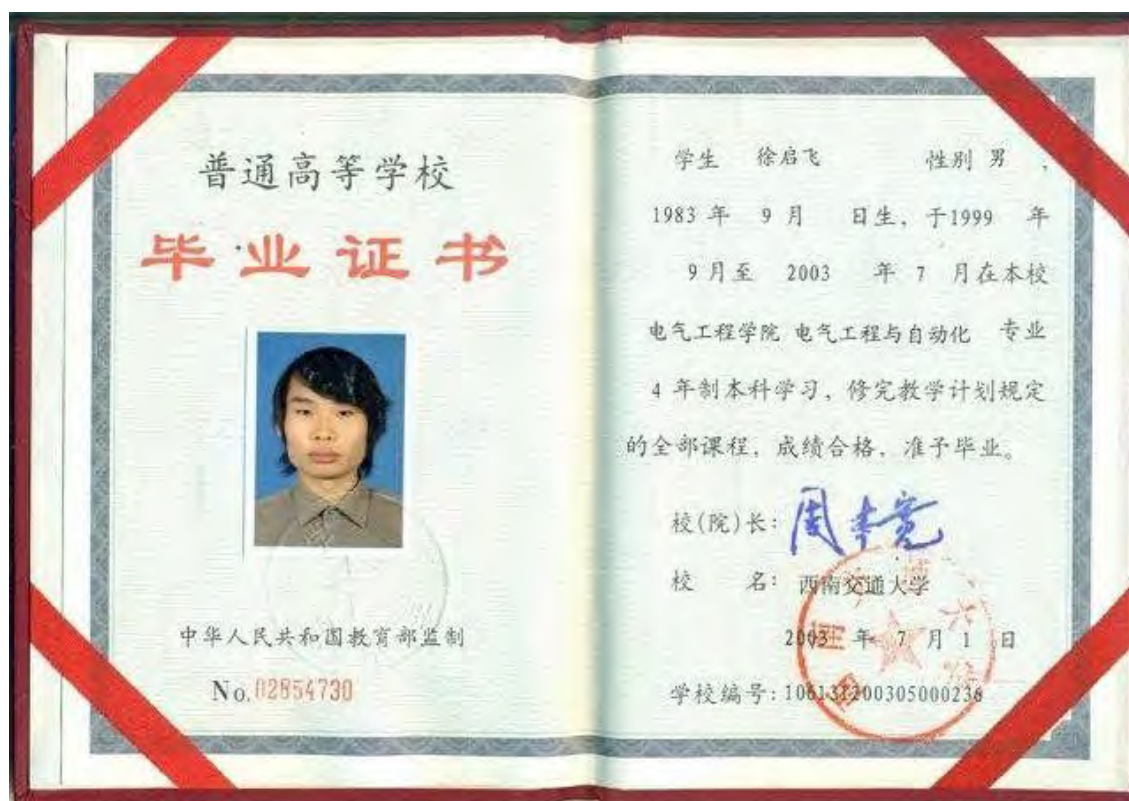 普通高等学校
毕业证书
中华人民共和国教育部监制
No.02854730
学生 徐启飞 性别 男 ,
1983 年 9 月 日生, 于1999 年
9 月至 2003 年 7 月在本校
电气工程学院 电气工程与自动化 专业
4 年制本科学习, 修完教学计划规定
的全部课程, 成绩合格, 准予毕业。
校(院)长: 周本宽
校 名: 西南交通大学
2003 年 7 月 1 日
学校编号: 106131200305000236